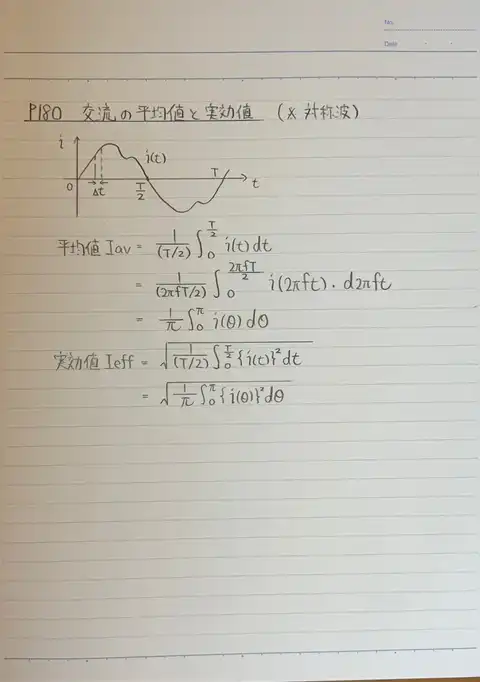 No.
Date
P180 交流の平均値と実効値 (※ 対称波)
i
i(t)
0 Δt T/2 T t
平均値 Iav = 1/(T/2) ∫₀^(T/2) i(t)dt
= 1/(2πfT/2) ∫₀^(2πfT/2) i(2πft)・d2πft
= 1/π ∫₀^π i(θ)dθ
実効値 Ieff = √(1/(T/2) ∫₀^(T/2) {i(t)}²dt)
= √(1/π ∫₀^π {i(θ)}²dθ)